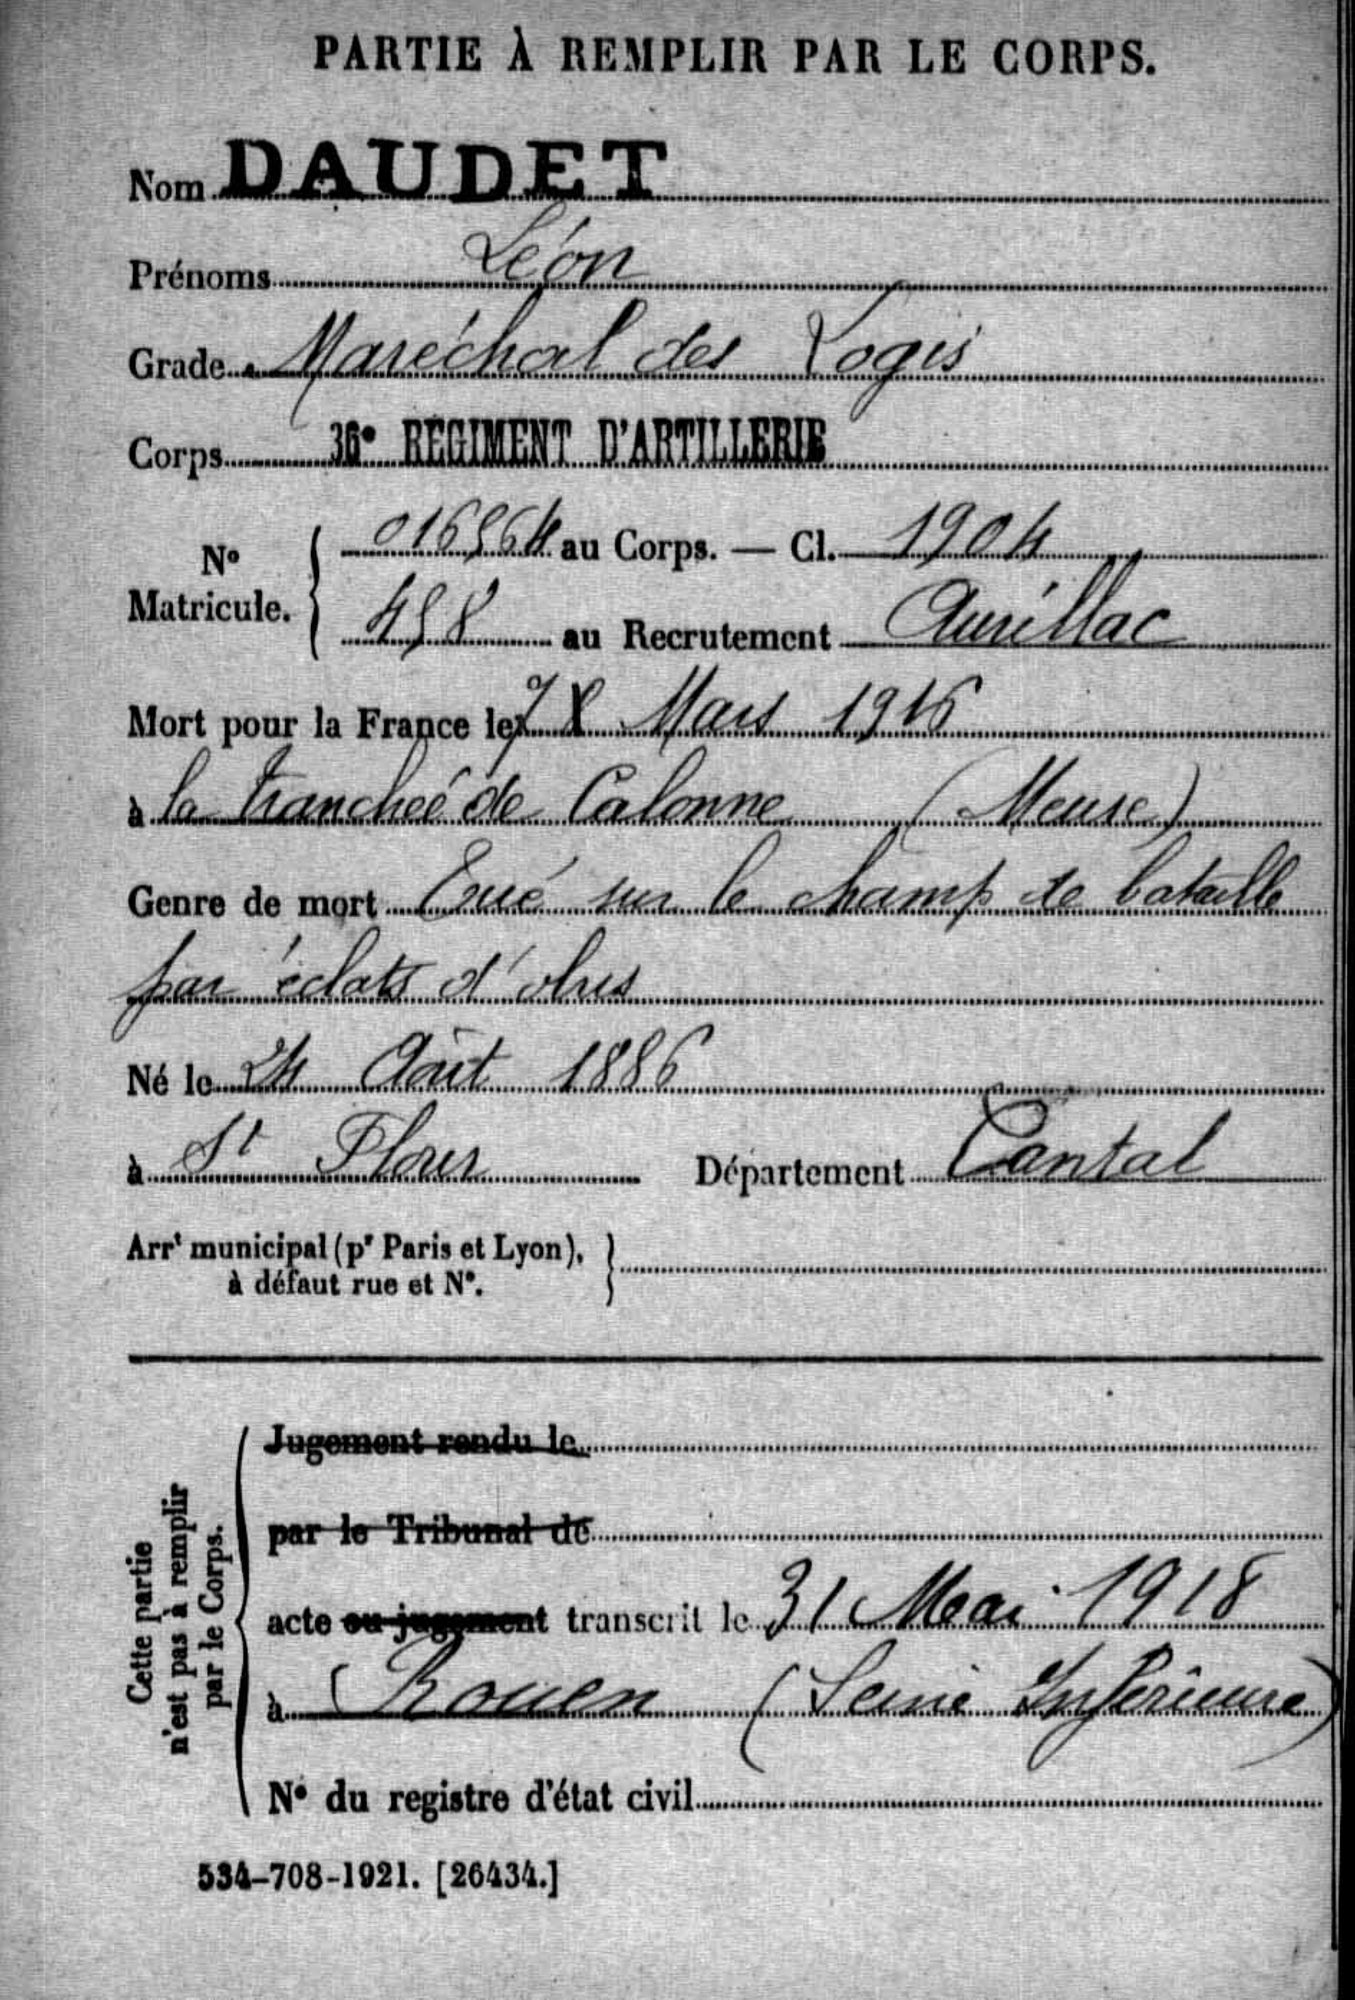 PARTIE À REMPLIR PAR LE CORPS.
Nom DAUDET
Prénoms Léon
Grade Maréchal des Logis
Corps 36e REGIMENT D'ARTILLERIE
N° Matricule. { 016564 au Corps. — Cl. 1904
458 au Recrutement Aurillac
Mort pour la France le 7 Mars 1916
à la tranchée de Calonne (Meuse)
Genre de mort Tué sur le champ de bataille
par éclats d'obus
Né le 24 Août 1886
à St Flour Département Cantal
Arrt municipal (pr Paris et Lyon),
à défaut rue et N°.
Cette partie
n'est pas à remplir
par le Corps.
Jugement rendu le
par le Tribunal de
acte ou jugement transcrit le 31 Mai 1918
à Rouen (Seine Inférieure)
N° du registre d'état civil
534-708-1921. [26434.]